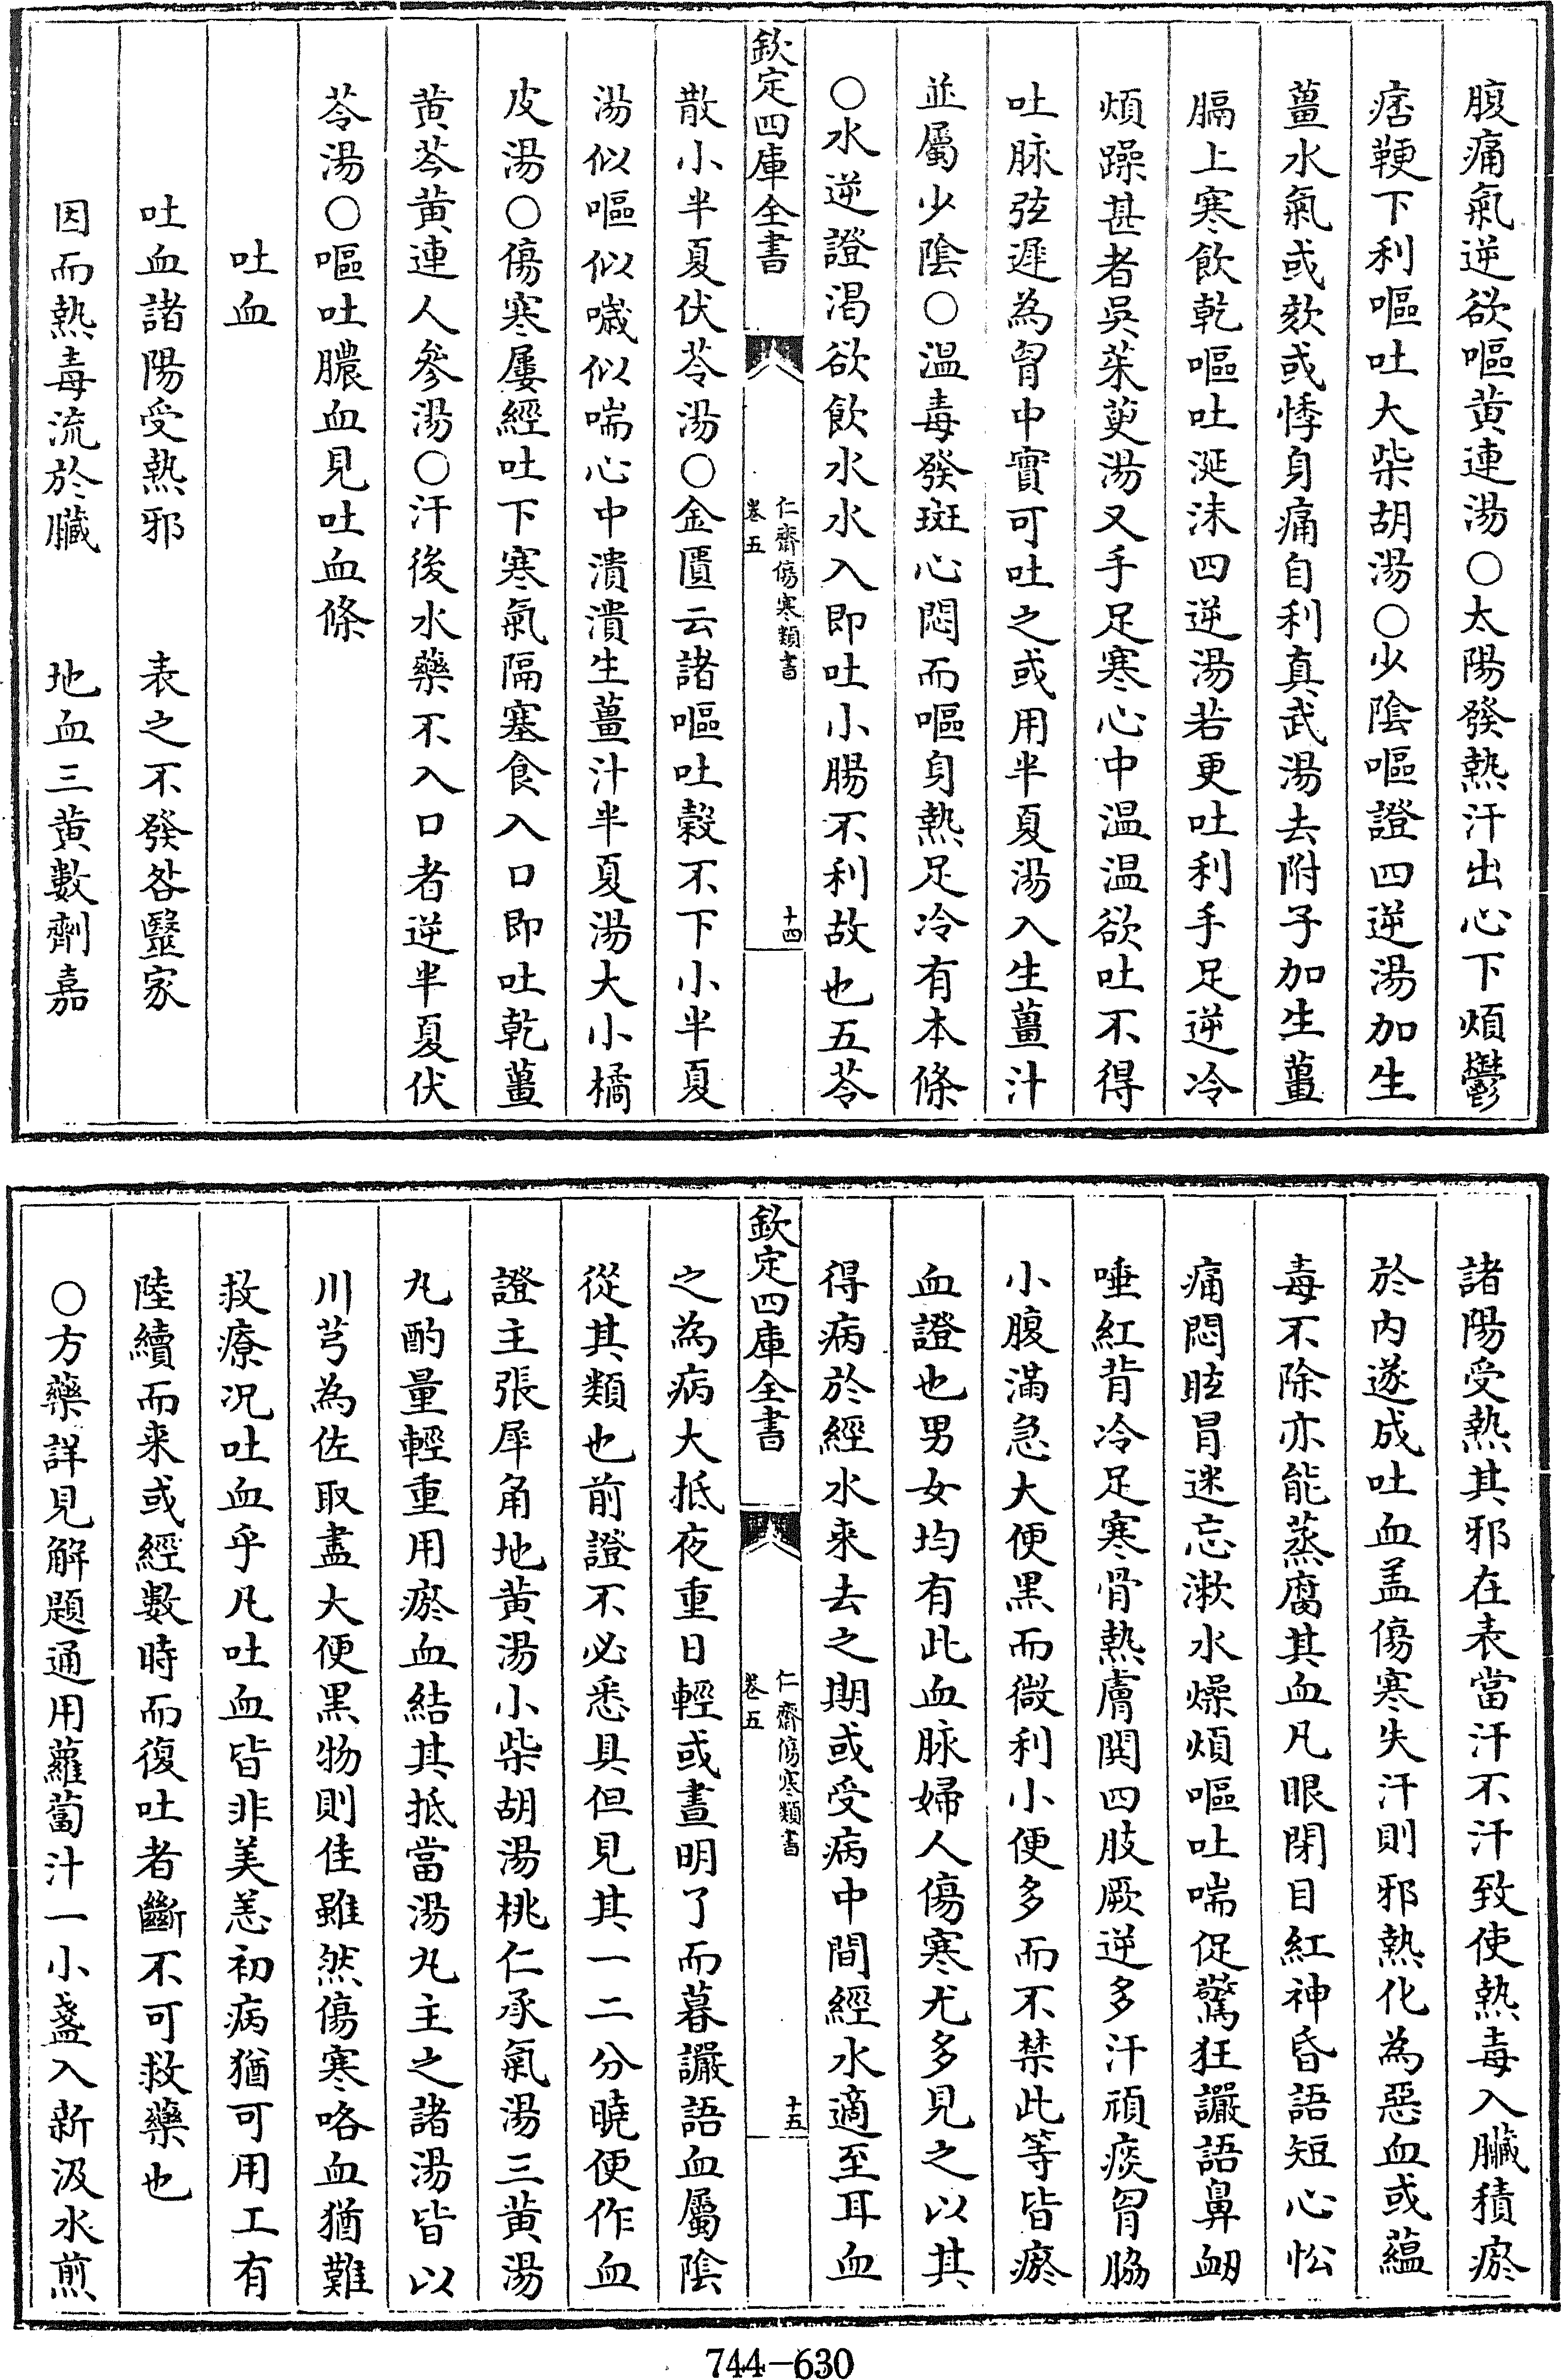 腹痛氣逆欲嘔黄連湯○太陽發熱汗出心下煩鬱
痞鞕下利嘔吐大柴胡湯○少隂嘔證四逆湯加生
薑水氣或欬或悸身痛自利真武湯去附子加生薑
膈上寒飲乾嘔吐涎沫四逆湯若更吐利手足逆冷
煩躁甚者吳茱萸湯又手足寒心中温温欲吐不得
吐脉弦遲為胷中實可吐之或用半夏湯入生薑汁
並屬少隂○温毒發斑心悶而嘔身熱足冷有本條
○水逆證渇欲飲水水入即吐小腸不利故也五苓
欽定四庫全書
仁齋傷寒類書
卷五
十四
散小半夏伏苓湯○金匱云諸嘔吐榖不下小半夏
湯似嘔似噦似喘心中潰潰生薑汁半夏湯大小橘
皮湯○傷寒屢經吐下寒氣隔塞食入口即吐乾薑
黄芩黄連人參湯○汗後水藥不入口者逆半夏伏
苓湯○嘔吐膿血見吐血條
吐血
吐血諸陽受熱邪　表之不發咎毉家
因而熱毒流於臟　地血三黄數劑嘉
諸陽受熱其邪在表當汗不汗致使熱毒入臟積瘀
於内遂成吐血盖傷寒失汗則邪熱化為惡血或藴
毒不除亦能蒸腐其血凡眼閉目紅神昏語短心忪
痛悶眩冒迷忘漱水燥煩嘔吐喘促驚狂讝語鼻衄
唾紅背冷足寒骨熱膚閧四肢厥逆多汗頑痰胷脇
小腹滿急大便黒而微利小便多而不禁此等皆瘀
血證也男女均有此血脉婦人傷寒尤多見之以其
得病於經水来去之期或受病中間經水適至耳血
欽定四庫全書
仁齋傷寒類書
卷五
十五
之為病大抵夜重日輕或晝明了而暮讝語血屬隂
從其類也前證不必悉具但見其一二分曉便作血
證主張犀角地黄湯小柴胡湯桃仁承氣湯三黄湯
丸酌量輕重用瘀血結其抵當湯丸主之諸湯皆以
川芎為佐取盡大便黒物則佳雖然傷寒咯血猶難
救療况吐血乎凡吐血皆非美恙初病猶可用工有
陸續而来或經數時而復吐者斷不可救藥也
○方藥詳見解題通用蘿蔔汁一小盞入新汲水煎
744-630